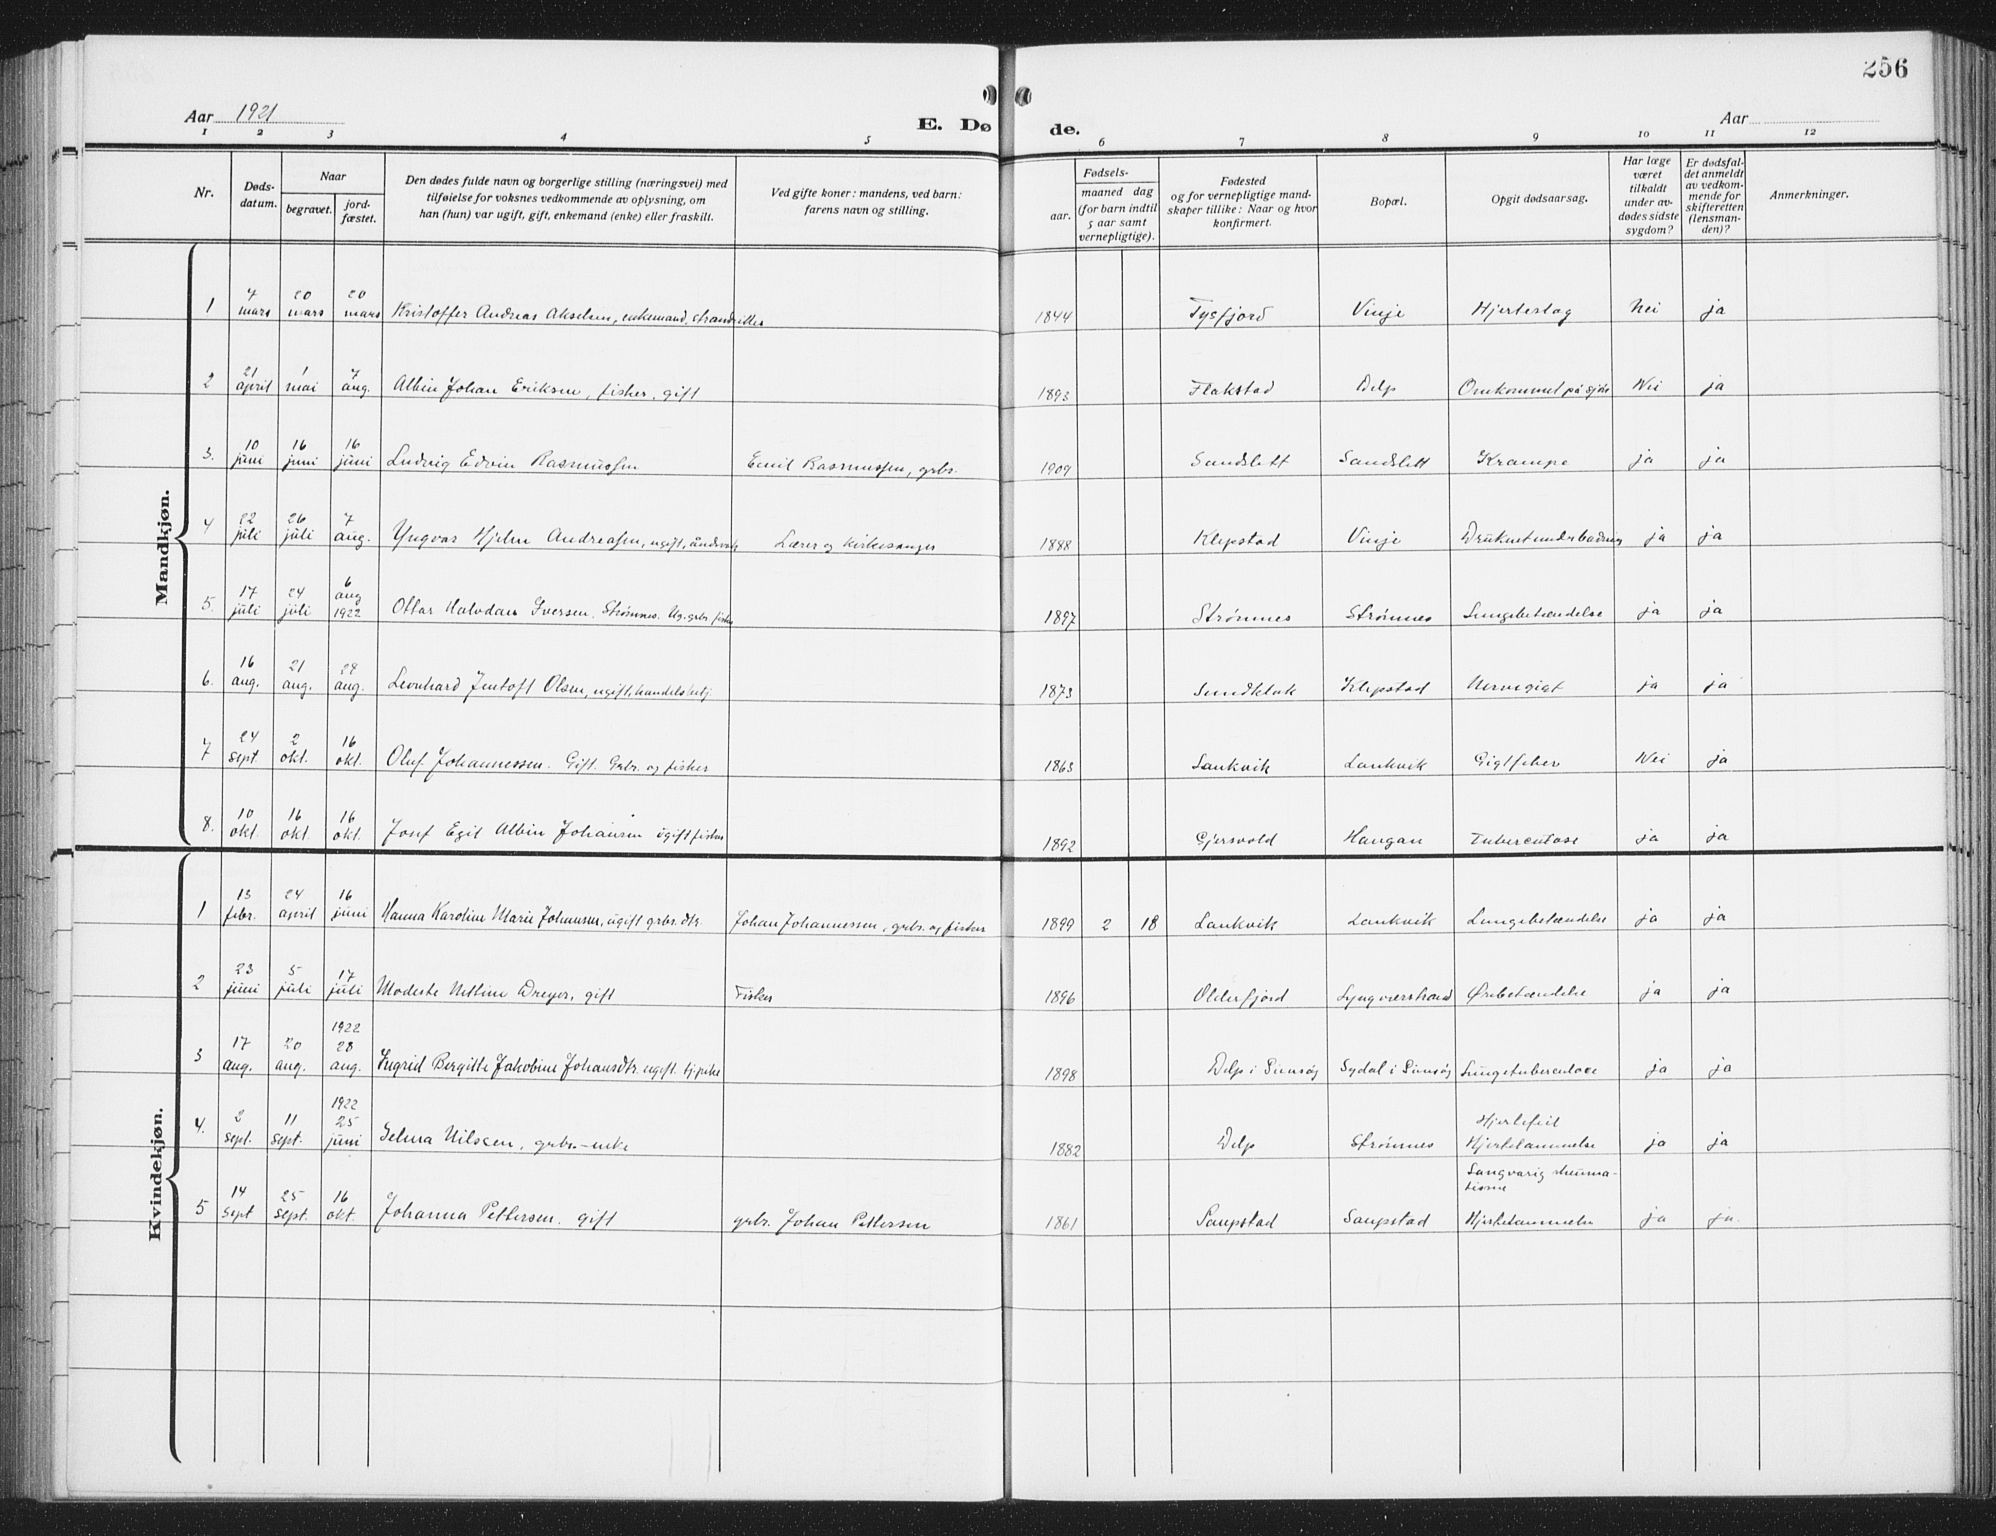 256
Aar 1921
E. Dø de.
Aar
1 2 3 4 5 6 7 8 9 10 11 12
Nr.
Døds-
datum.
Naar
begravet.
jord-
fæstet.
Den dødes fulde navn og borgerlige stilling (næringsvei) med
tilføielse for voksnes vedkommende av oplysning, om
han (hun) var ugift, gift, enkemand (enke) eller fraskilt.
Ved gifte koner: mandens, ved barn:
farens navn og stilling.
Fødsels-
aar.
maaned dag
(for barn indtil
5 aar samt
vernepligtige).
Fødested
og for vernepligtige mand-
skaper tillike: Naar og hvor
konfirmert.
Bopæl.
Opgit dødsaarsag.
Har læge
været
tilkaldt
under av-
dødes sidste
sygdom?
Er dødsfal-
det anmeldt
av vedkom-
mende for
skifteretten
(lensman-
den)?
Anmerkninger.
Mandkjøn.
1 7 mars 20 mars 20 mars Kristoffer Andreas Akselsen, enkemand, strandsitter 1844 Tysfjord Vinje Hjerteslag Nei ja
2 21 april 1 mai 7 aug. Albin Johan Eriksen, fisker, gift 1893 Flakstad Delp Omkommet på sjøen Nei ja
3. 10 juni 16 juni 16 juni Ludvig Edvin Rasmussen Emil Rasmussen, grbr. 1909 Sandslett Sandslett Krampe ja ja
4 22 juli 26 juli 7 aug. Yngvar Hjelm Andreasen, ugift, åndssvak Lærer og kirkesanger 1888 Klepstad Vinje Druknet under badning ja ja
5. 17 juli 24 juli 6 aug 1922 Ottar Halvdan Iversen. Strømnes. Ug. grbr. fisker 1897 Strømnes Strømnes Lungebetændelse ja ja
6. 16 aug. 21 aug. 28 aug. Leonhard Jentoft Olsen, ugift, handelsbetj. 1873 Sundklak Klepstad Nervegigt ja ja
7 24 sept. 2 okt. 16 okt. Oluf Johannessen. Gift. Grbr. og fisker 1863 Laukvik Laukvik Gigtfeber Nei ja
8. 10 okt. 16 okt. 16 okt. Josef Egil Albin Johansen ugift fisker 1892 Gjersvold Haugan Tuberculose ja ja
Kvindekjøn.
1 13 febr. 24 april 16 juni Hanna Karoline Marie Johansen, ugift grbr. dtr. Johan Johannessen, grbr. og fisker 1899 2 18 Laukvik Laukvik Lungebetændelse ja ja
2 23 juni 5 juli 17 juli Modeste Nettine Dreyer, gift Fisker 1896 Olderfjord Lyngværstrand Ørebetændelse ja ja
3 17 aug. 20 aug. 1922 28 aug. Ingrid Bergitte Jakobine Johansdtr. ugift. tj.pike 1898 Delp i Gimsøy Sydal i Gimsøy Lungetuberculose ja ja
4. 2 sept. 11 sept. 1922 25 juni Selma Nilsen, grbr.-enke 1882 Delp Strømnes Hjertefeil Hjertelammelse ja ja
5 14 sept 25 sept. 16 okt. Johanna Pettersen. gift grbr. Johan Pettersen 1861 Saupstad Saupstad Langvarig rheuma-
tisme Hjertelammelse ja ja.